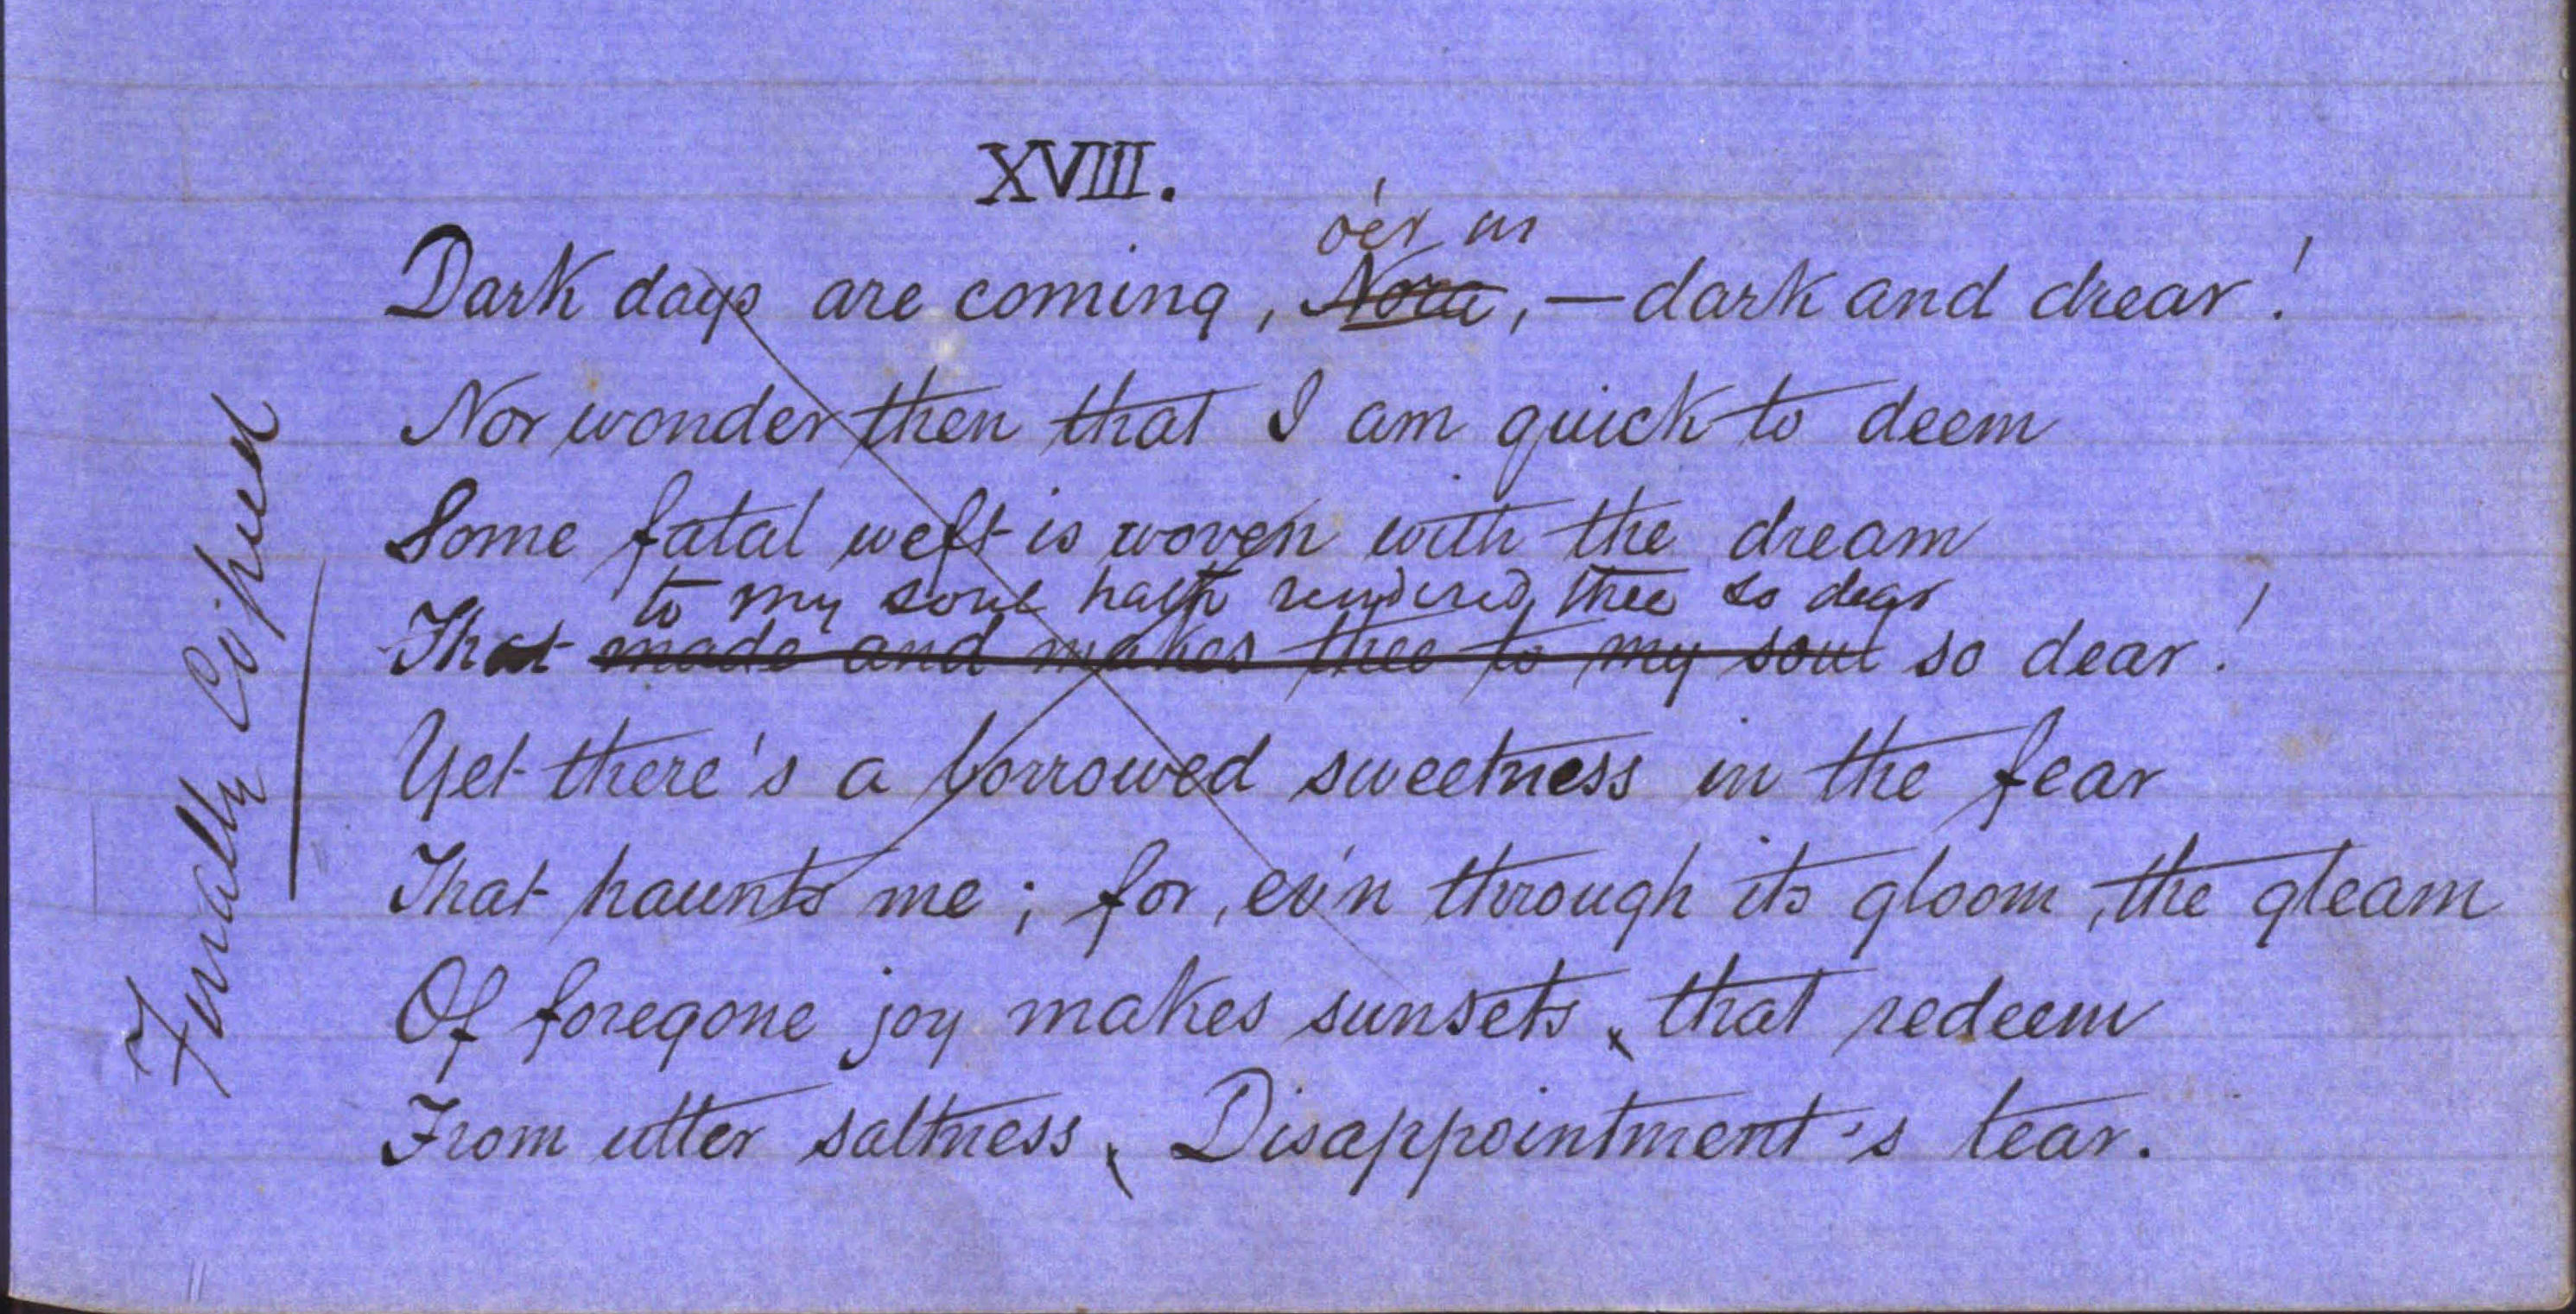 XVIII.
o'er us
Dark days are coming, Nora, — dark and drear!
Nor wonder then that I am quick to deem
Some fatal weft is woven with the dream
to my soul hath rendered thee so dear
That made and makes thee to my soul so dear!
Yet there's a borrowed sweetness in the fear
That haunts me; for, ev'n through its gloom, the gleam
Of foregone joy makes sunsets, that redeem
From utter saltness, Disappointment's tear.
Finally Copied